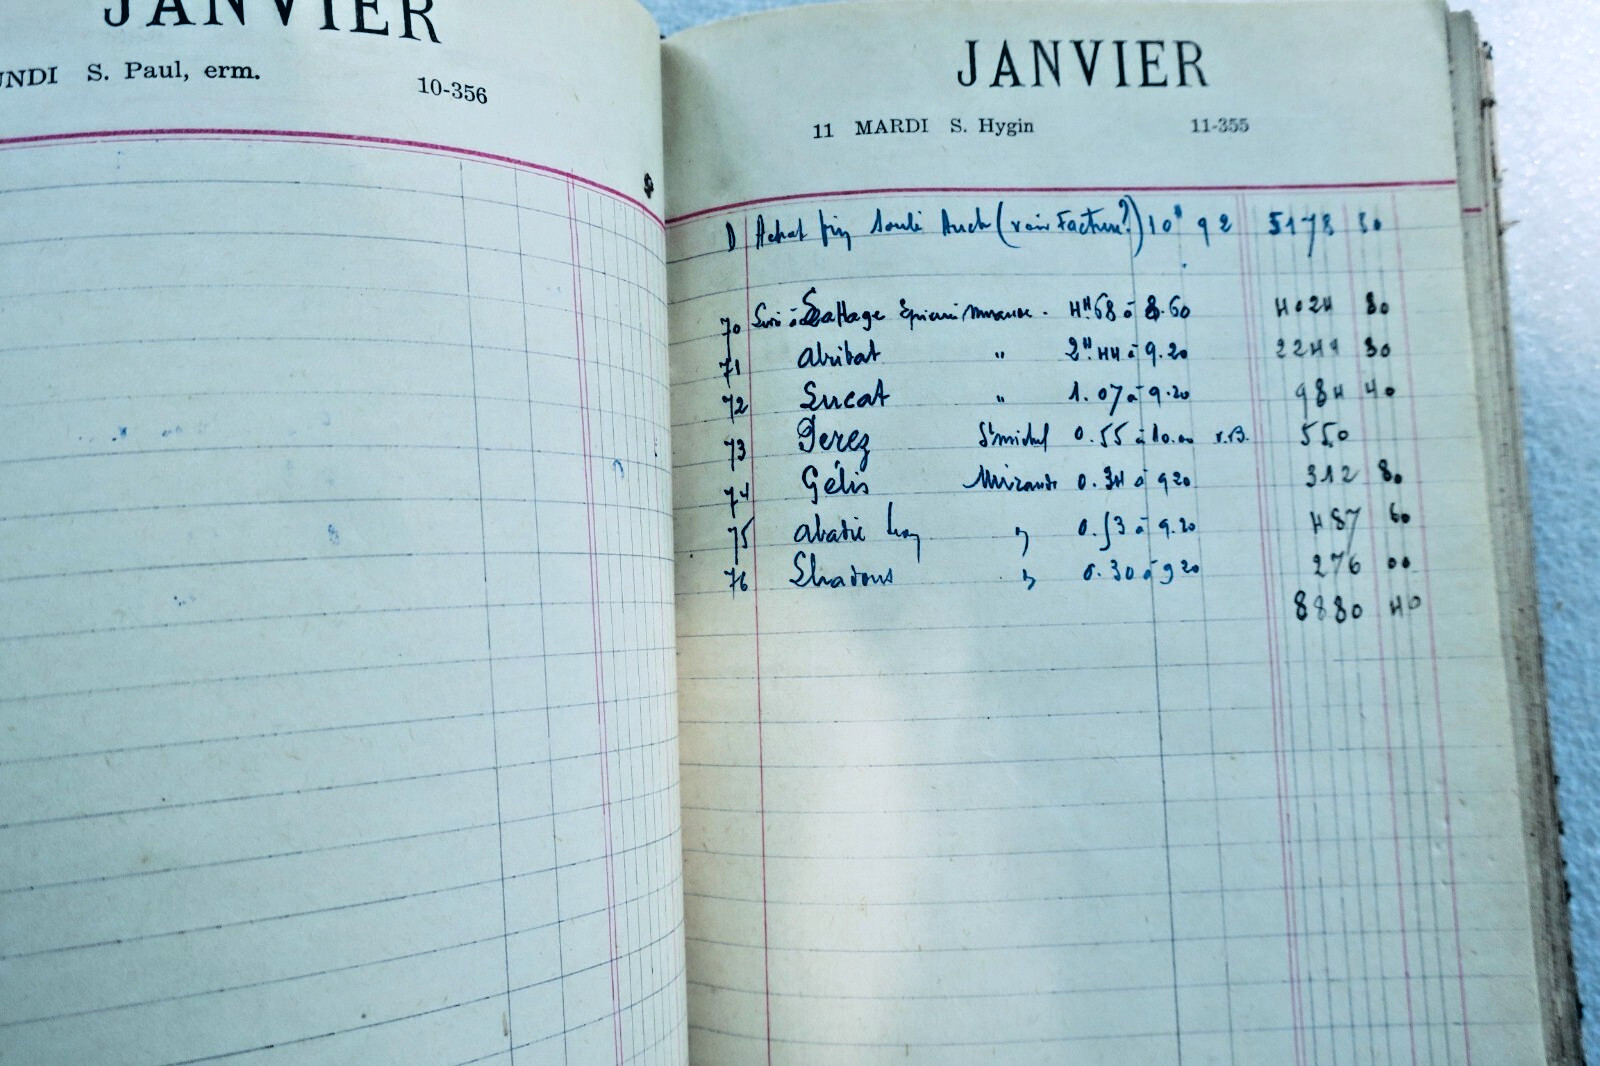 JANVIER
UNDI S. Paul, erm. 10-356
JANVIER
11 MARDI S. Hygin 11-355
D Achat Auch (voir Facture?) 10H 92 5178 50
70 Lattage Epicerie Mirande. 4H.68 à 8.60 4024 80
71 Abribat " 2H.44 à 9.20 2244 30
72 Lucat " 1.07 à 9.20 984 40
73 Perez St michel 0.55 à 10.00 v.B. 550
74 Gélis Mirande 0.34 à 920 312 80
75 abatie " 0.53 à 9.20 487 60
76 " 0.30 à 920 276 00
8880 40